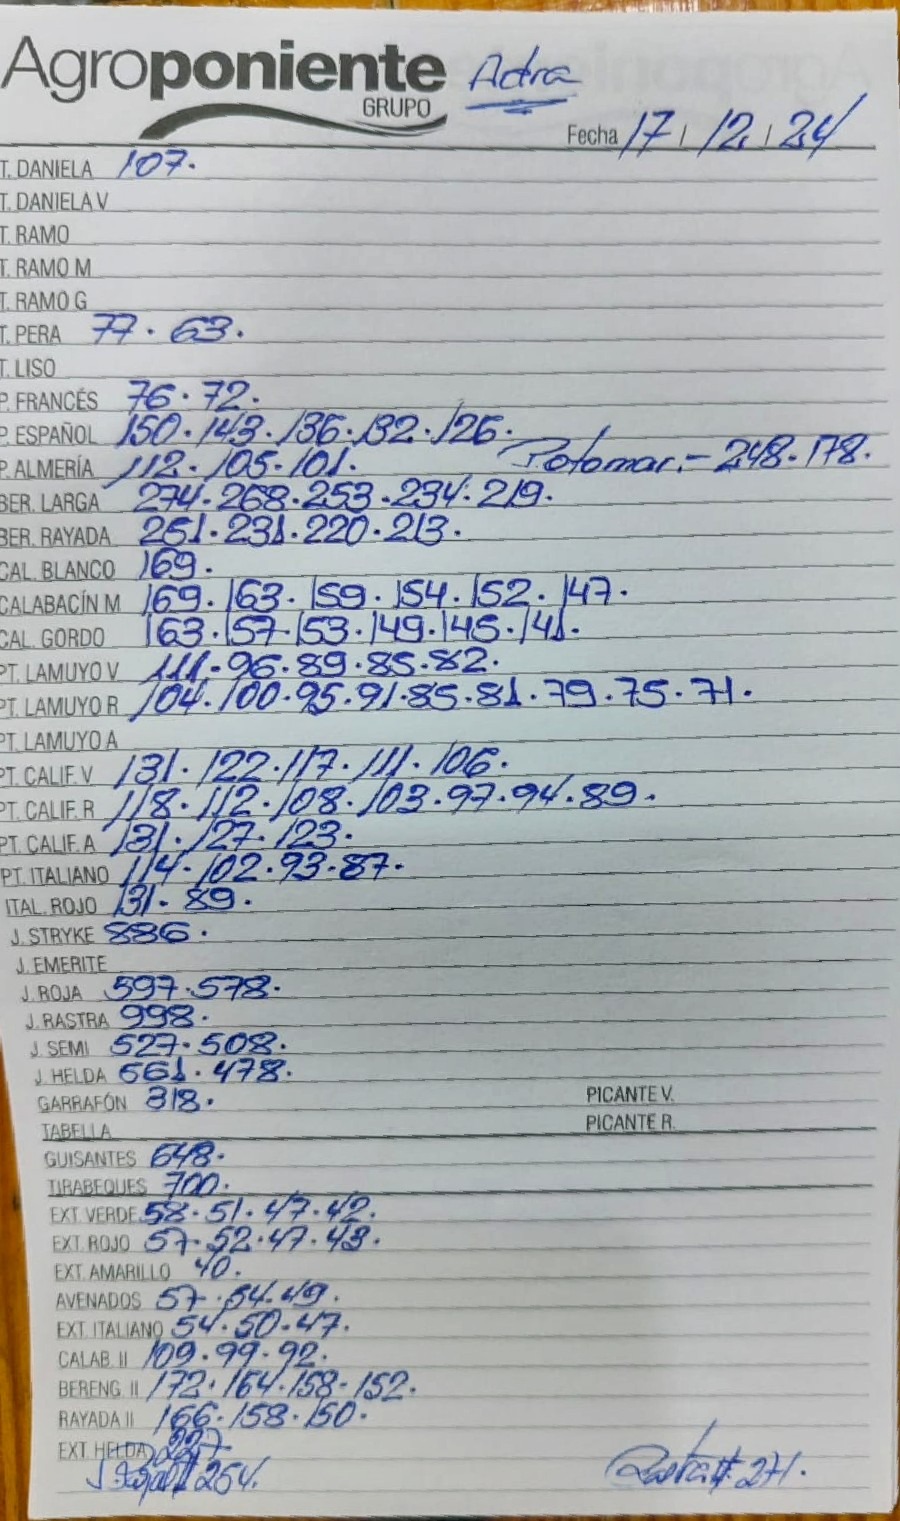 Agroponiente Adra
GRUPO
Fecha 17 / 12 / 24
T. DANIELA 107.
T. DANIELA V
T. RAMO
T. RAMO M
T. RAMO G
T. PERA 77. 63.
T. LISO
P. FRANCÉS 76. 72.
P. ESPAÑOL 150. 143. 136. 132. 126.
P. ALMERÍA 112. 105. 101. Potomar.- 248. 178.
BER. LARGA 274. 268. 253. 234. 219.
BER. RAYADA 251. 231. 220. 213.
CAL. BLANCO 169.
CALABACÍN M 169. 163. 159. 154. 152. 147.
CAL. GORDO 163. 157. 153. 149. 145. 141.
PT. LAMUYO V 111. 96. 89. 85. 82.
PT. LAMUYO R 104. 100. 95. 91. 85. 81. 79. 75. 71.
PT. LAMUYO A
PT. CALIF. V 131. 122. 117. 111. 106.
PT. CALIF. R 118. 112. 108. 103. 97. 94. 89.
PT. CALIF. A 131. 127. 123.
PT. ITALIANO 114. 102. 93. 87.
ITAL. ROJO 131. 89.
J. STRYKE 886.
J. EMERITE
J. ROJA 597. 578.
J. RASTRA 998.
J. SEMI 527. 508.
J. HELDA 561. 478.
GARRAFÓN 318. PICANTE V.
TABELLA PICANTE R.
GUISANTES 648.
TIRABEQUES 700.
EXT. VERDE 58. 51. 47. 42.
EXT. ROJO 57. 52. 47. 43.
EXT. AMARILLO 40.
AVENADOS 57. 54. 49.
EXT. ITALIANO 54. 50. 47.
CALAB. II 109. 99. 92.
BERENG. II 172. 164. 158. 152.
RAYADA II 166. 158. 150.
EXT. HELDA 227
254. 271.